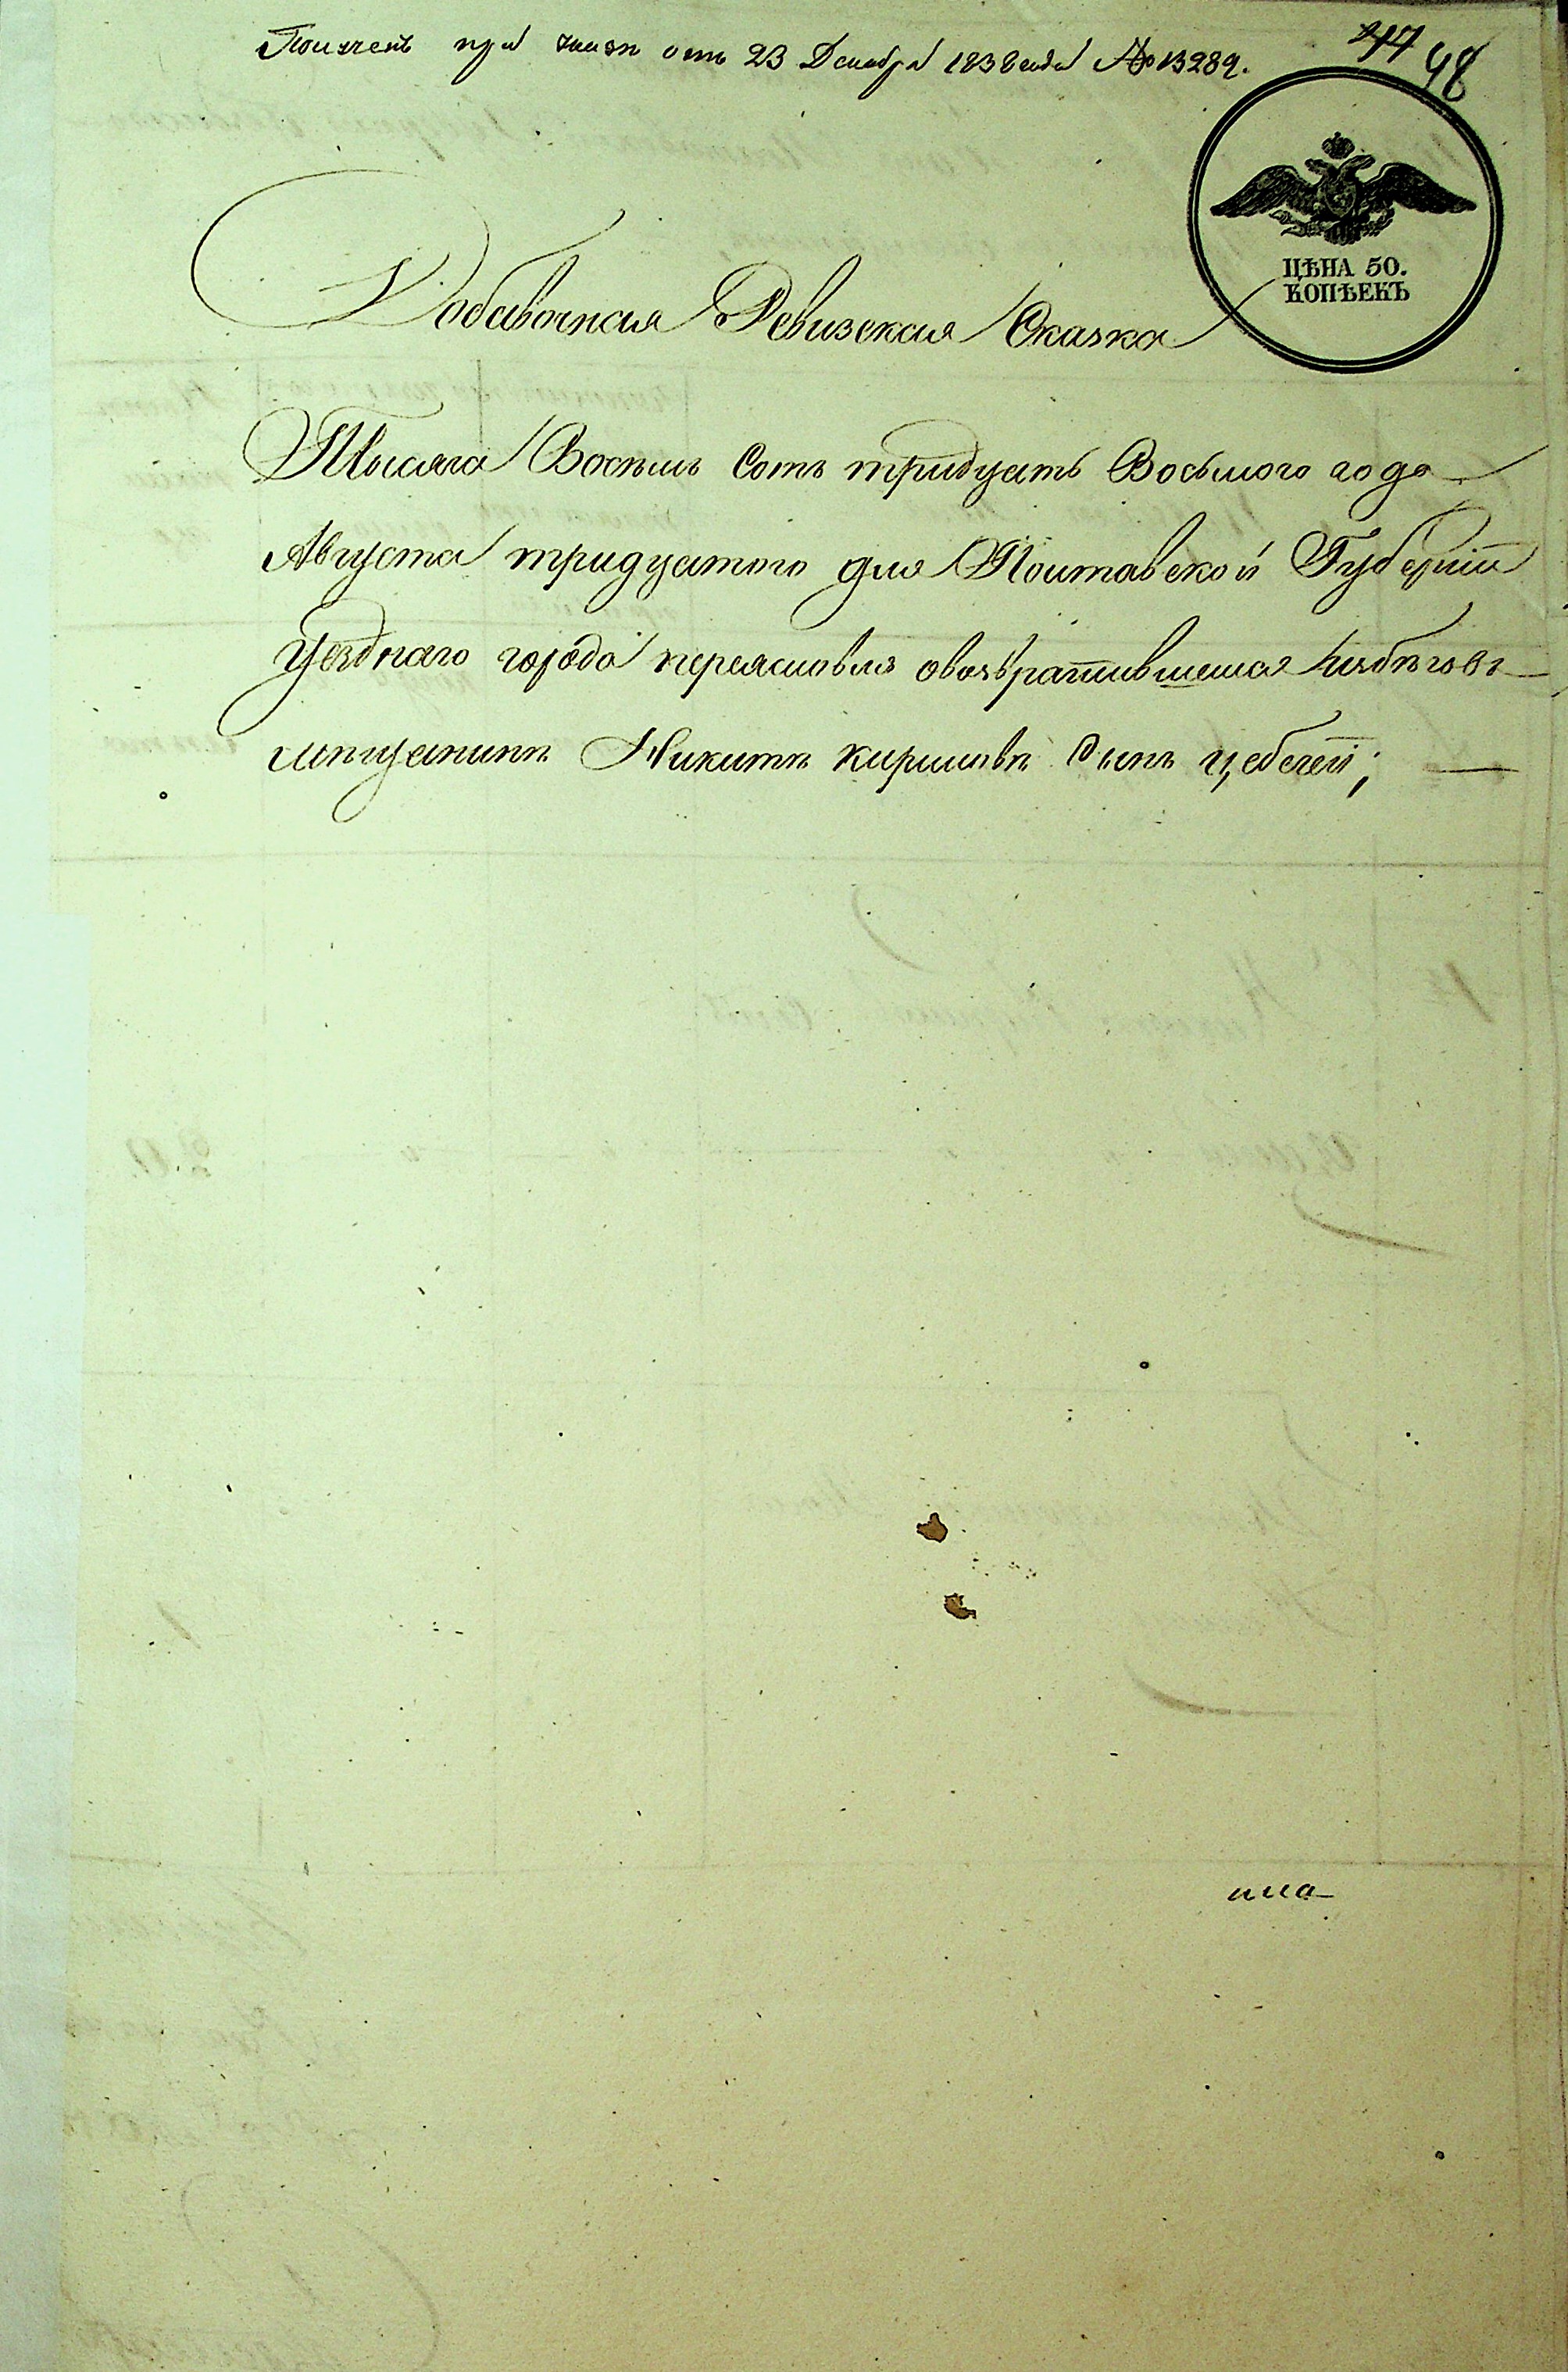 Получена при указѣ отъ 23 Декабря 1838 года № 13289.
47 48
ЦѢНА 50.
КОПѢЕКЪ
Добавочная Ревизская Сказка
Тысяча Восѣмъ Сотъ тридцать Восьмого года
Августа тридцатого дня Полтавской Губерніи
уезднаго города переяславля овозвратившемся избѣговъ
мѣщанинѣ Никитѣ кириловѣ Сынѣ цебегей;